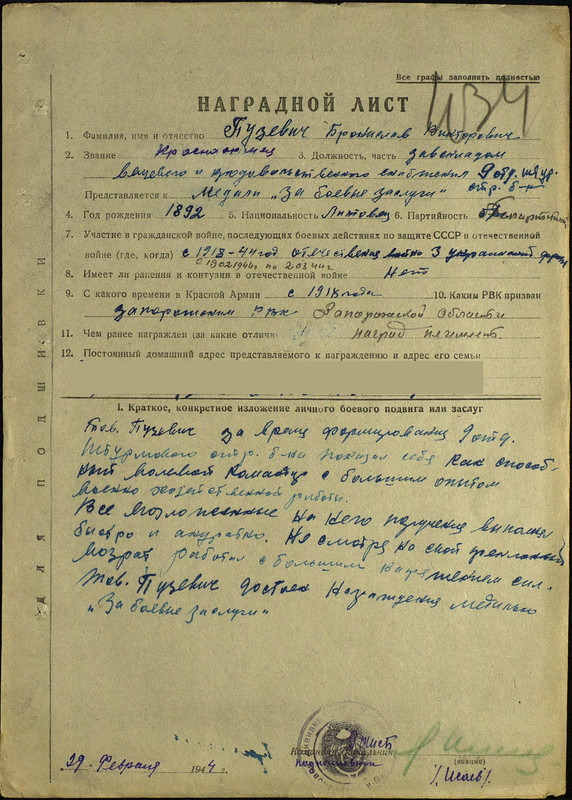 Все графы заполнять полностью
434
НАГРАДНОЙ ЛИСТ
1. Фамилия, имя и отчество Пузевич Бронислав Викторович
2. Звание Красноармеец 3. Должность, часть завскладом
вещевого и продовольственного снабжения 9 отд. штур.
Представляется к Медали "За боевые заслуги" отр. б-н
4. Год рождения 1892 5. Национальность Литовец 6. Партийность беспартийный
7. Участие в гражданской войне, последующих боевых действиях по защите СССР и отечественной
войне (где, когда) с 1918-44 год отечественная война 3 украинский фронт
8. Имеет ли ранения и контузии в отечественной войне Нет
9. С какого времени в Красной Армии с 1918 года 10. Каким РВК призван
запорожским РВК Запорожской области
11. Чем ранее награжден (за какие отличия) наград не имеет
12. Постоянный домашний адрес представляемого к награждению и адрес его семьи
I. Краткое, конкретное изложение личного боевого подвига или заслуг
Тов. Пузевич за время формирования 9 отд.
Штурмового отр. б-на показал себя как способ-
ный волевой командир с большим опытом
военно хозяйственной работы.
Все возложенные на него получения выполнял
быстро и акуратно. Не смотря на свой преклонный
возрат работал с большим напряжением сил.
Тов. Пузевич достоен награждения медалью
"За боевые заслуги"
Командир (начальник)
(звание)
29. Февраля 1944 г.
/Исаев/
ДЛЯ ПОДШИВКИ